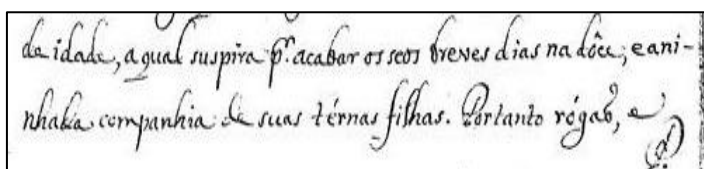 de idade, a qual suspira p.ª acabar os seos breves dias na dôce, e ani-
nhada companhia de suas térnas filhas. Portanto rógaõ, e